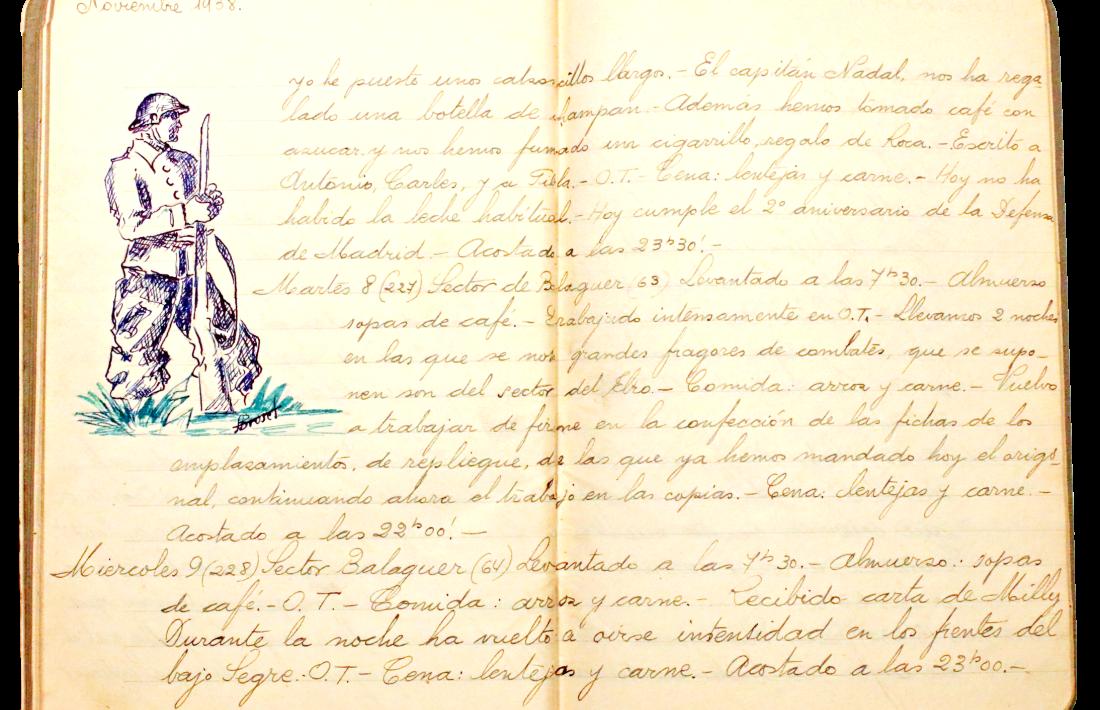 Noviembre 1938.
yo he puesto unos calsoncillos llargos.- El capitán Nadal, nos ha rega-
lado una botella de champan.- Ademas hemos tomado café con
azucar y nos hemos fumado un cigarrillo, regalo de Roca.- Escrito a
Antonio, Carles, y a Tibla.- O.T.- Cena: lentejas y carne.- Hoy no ha
habido la leche habitual.- Hoy cumple el 2º aniversario de la Defensa
de Madrid.- Acostado a las 23ʰ30'.-
Martes 8 (227) Sector de Balaguer (63) Levantado a las 7ʰ30.- Almuerzo
sopas de café.- Trabajado intensamente en O.T.- Llevamos 2 noches
en las que se nos grandes fragores de combates, que se supo-
nen son del sector del Ebro.- Comida: arroz y carne.- Vuelvo
a trabajar de firme en la confección de las fichas de los
Brosel
emplasamientos, de repliegue, de las que ya hemos mandado hoy el origi-
nal, continuando ahora el trabajo en las copias.- Cena: lentejas y carne.-
Acostado a las 22ʰ00'.-
Miercoles 9 (228) Sector Balaguer (64) Levantado a las 7ʰ30.- Almuerzo: sopas
de café.- O.T.- Comida: arroz y carne.- Recibido carta de Milly
Durante la noche ha vuelto a oirse intensidad en los frentes del
bajo Segre.- O.T.- Cena: lentejas y carne.- Acostado a las 23ʰ00.-